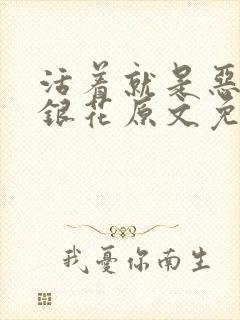 活着就是恶
银花原文免
我忧你南生